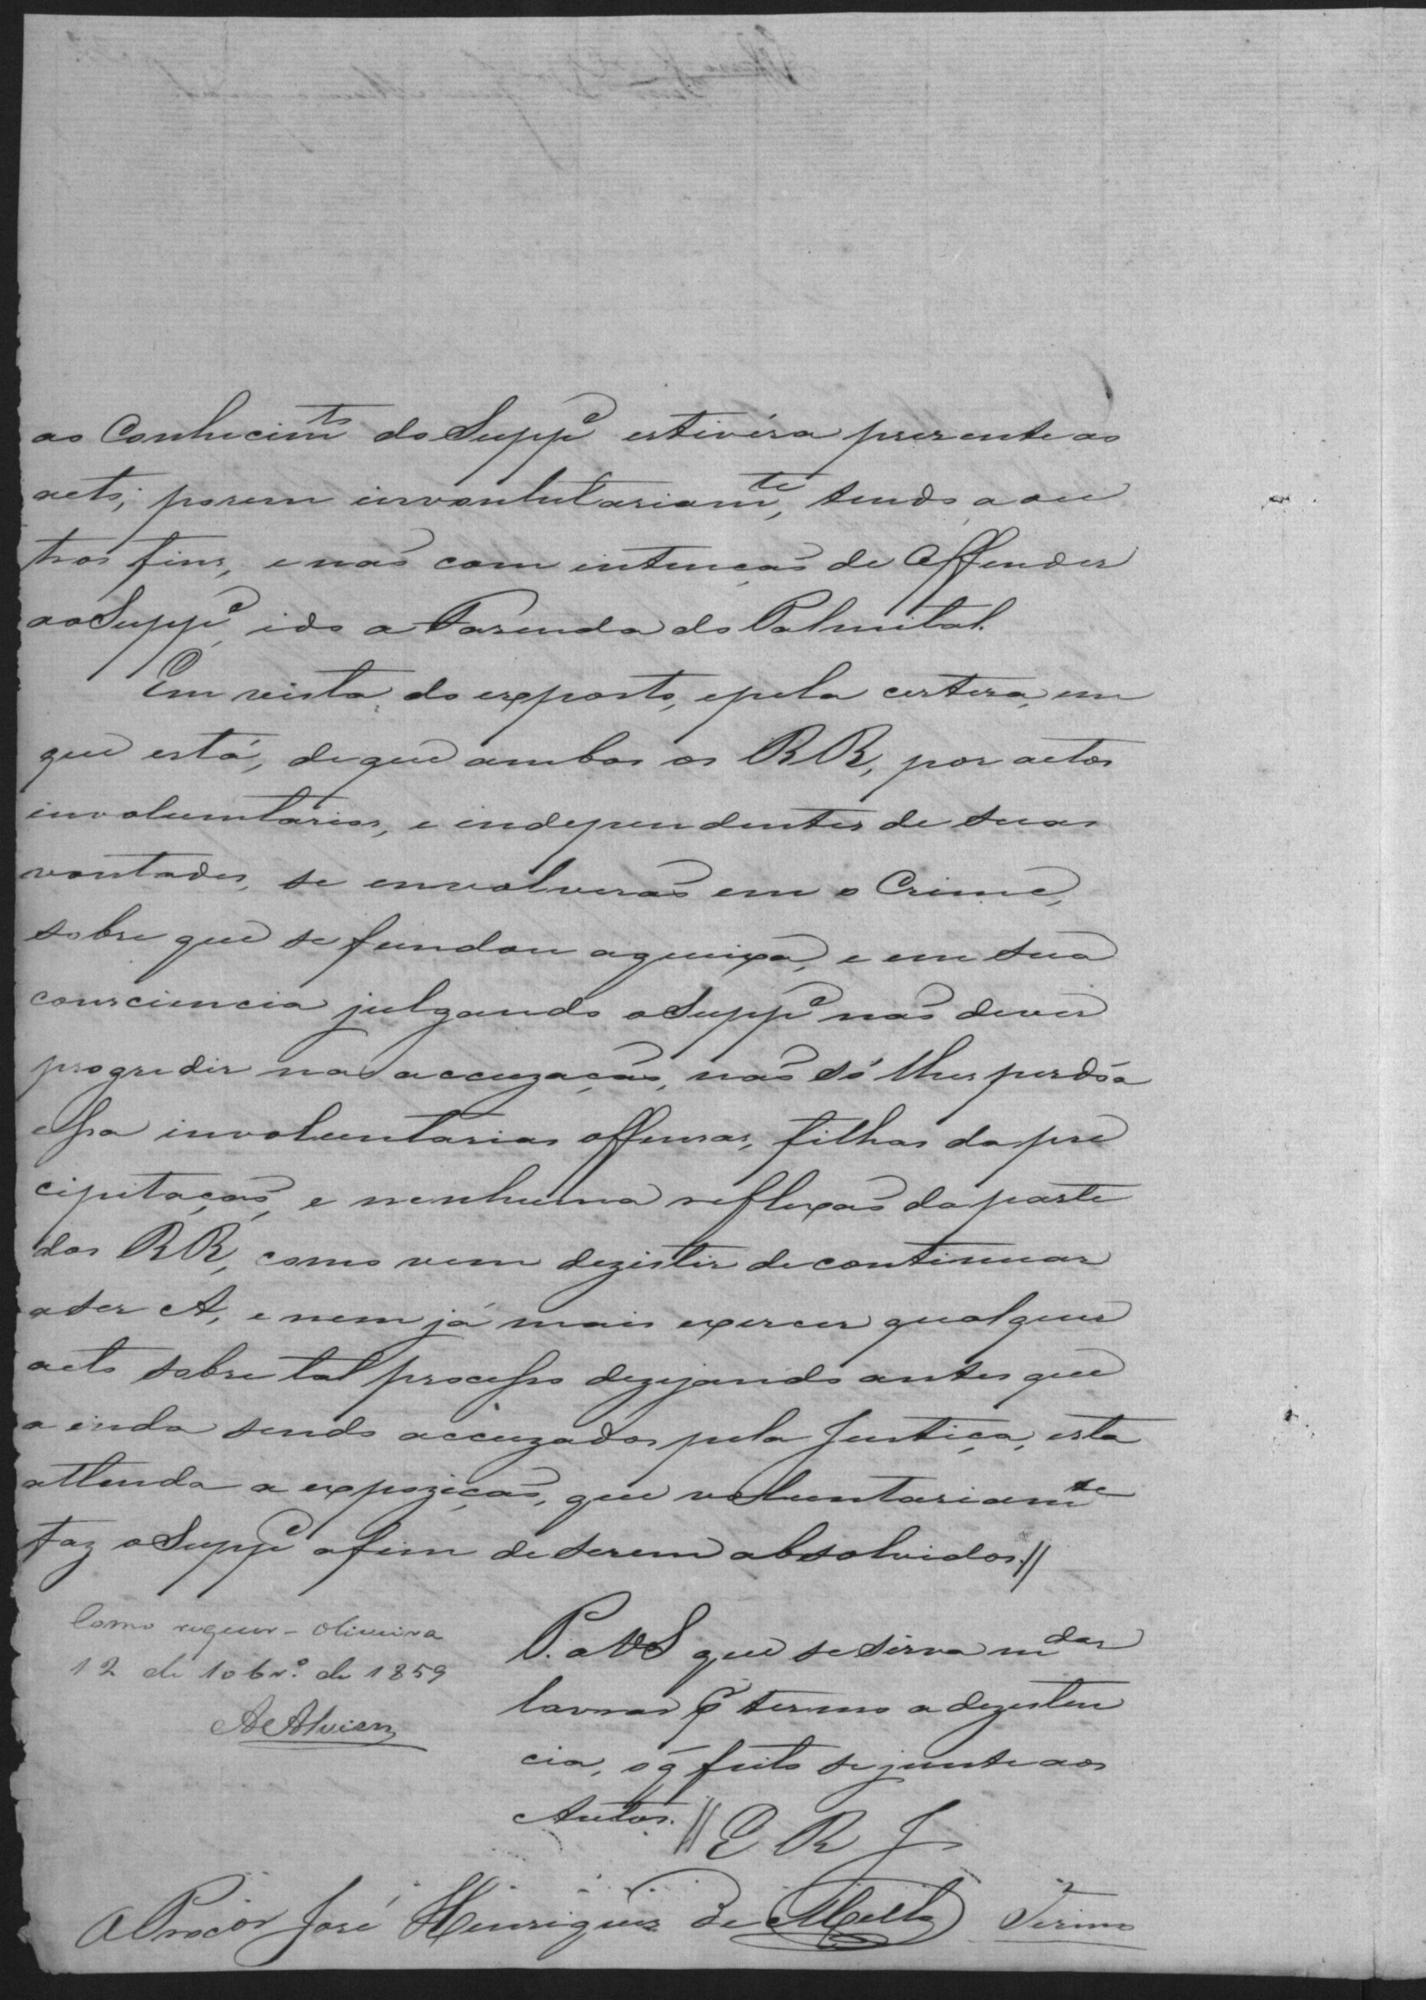 ao Conhecimto do Suppe estivéra presente ao
acto; porem involuntariamte, tendo a ou
tros fins, e naõ com intençaõ de Offender
ao Suppe, ido a Fazenda do Palmital.
Em vista do exposto, e pela certeza, em
que está, de que ambos os RR, por actos
involuntarios, e independentes de suas
vontades, se envolveraõ em o Crime,
sobre que se fundou a queixa, e em sua
consciencia julgando o Suppe naõ dever
progredir na accuzaçaõ, naõ só lhes perdôa
essas involuntarias offensas, filhas da pre
cipitaçaõ, e nenhuma reflexaõ da parte
dos RR, como vem dezistir de continuar
a ser A, e nem já mais exercer qualquer
acto sobre tal processo dezejando antes que
ainda sendo accuzados pela Justiça, esta
attenda a expoziçaõ, que voluntariamte
faz o Suppe afim de serem absolvidos.//
Como requer - Oliveira
12 de 10br.o de 1859
P. a VS que se sirva mdar
lavrar p termo a dezisten
cia, o q̃ feito se junte aos
Autos.// E R J
O Procor José Henriques de Mello Termo